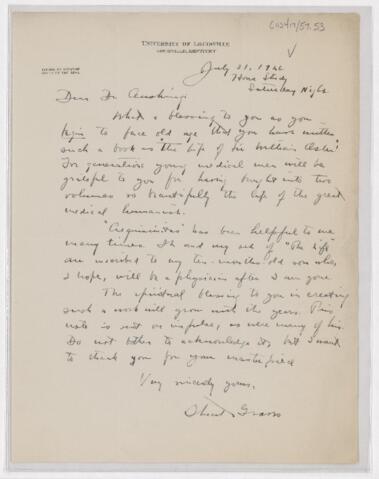 UNIVERSITY OF LOUISVILLE
LOUISVILLE, KENTUCKY
July 31, 1926
Home Study
Saturday Night
Dear Dr. Cushing:
What a blessing to you as you
begin to face old age that you have written
such a book as the Life of Sir William Osler!
For generations young medical men will be
grateful to you for having brought into two
volumes so beautifully the life of the great
medical humanist.
"Aequinimitas" has been helpful to me
many times. It and my set of "The Life"
are inscribed to my ten-months old son who,
I hope, will be a physician after I am gone.
The spiritual blessing to you in creating
such a work will grow with the years. This
note is sent on impulse, as were many of his.
Do not bother to acknowledge it, but I want
to thank you for your masterpiece
Very sincerely yours,